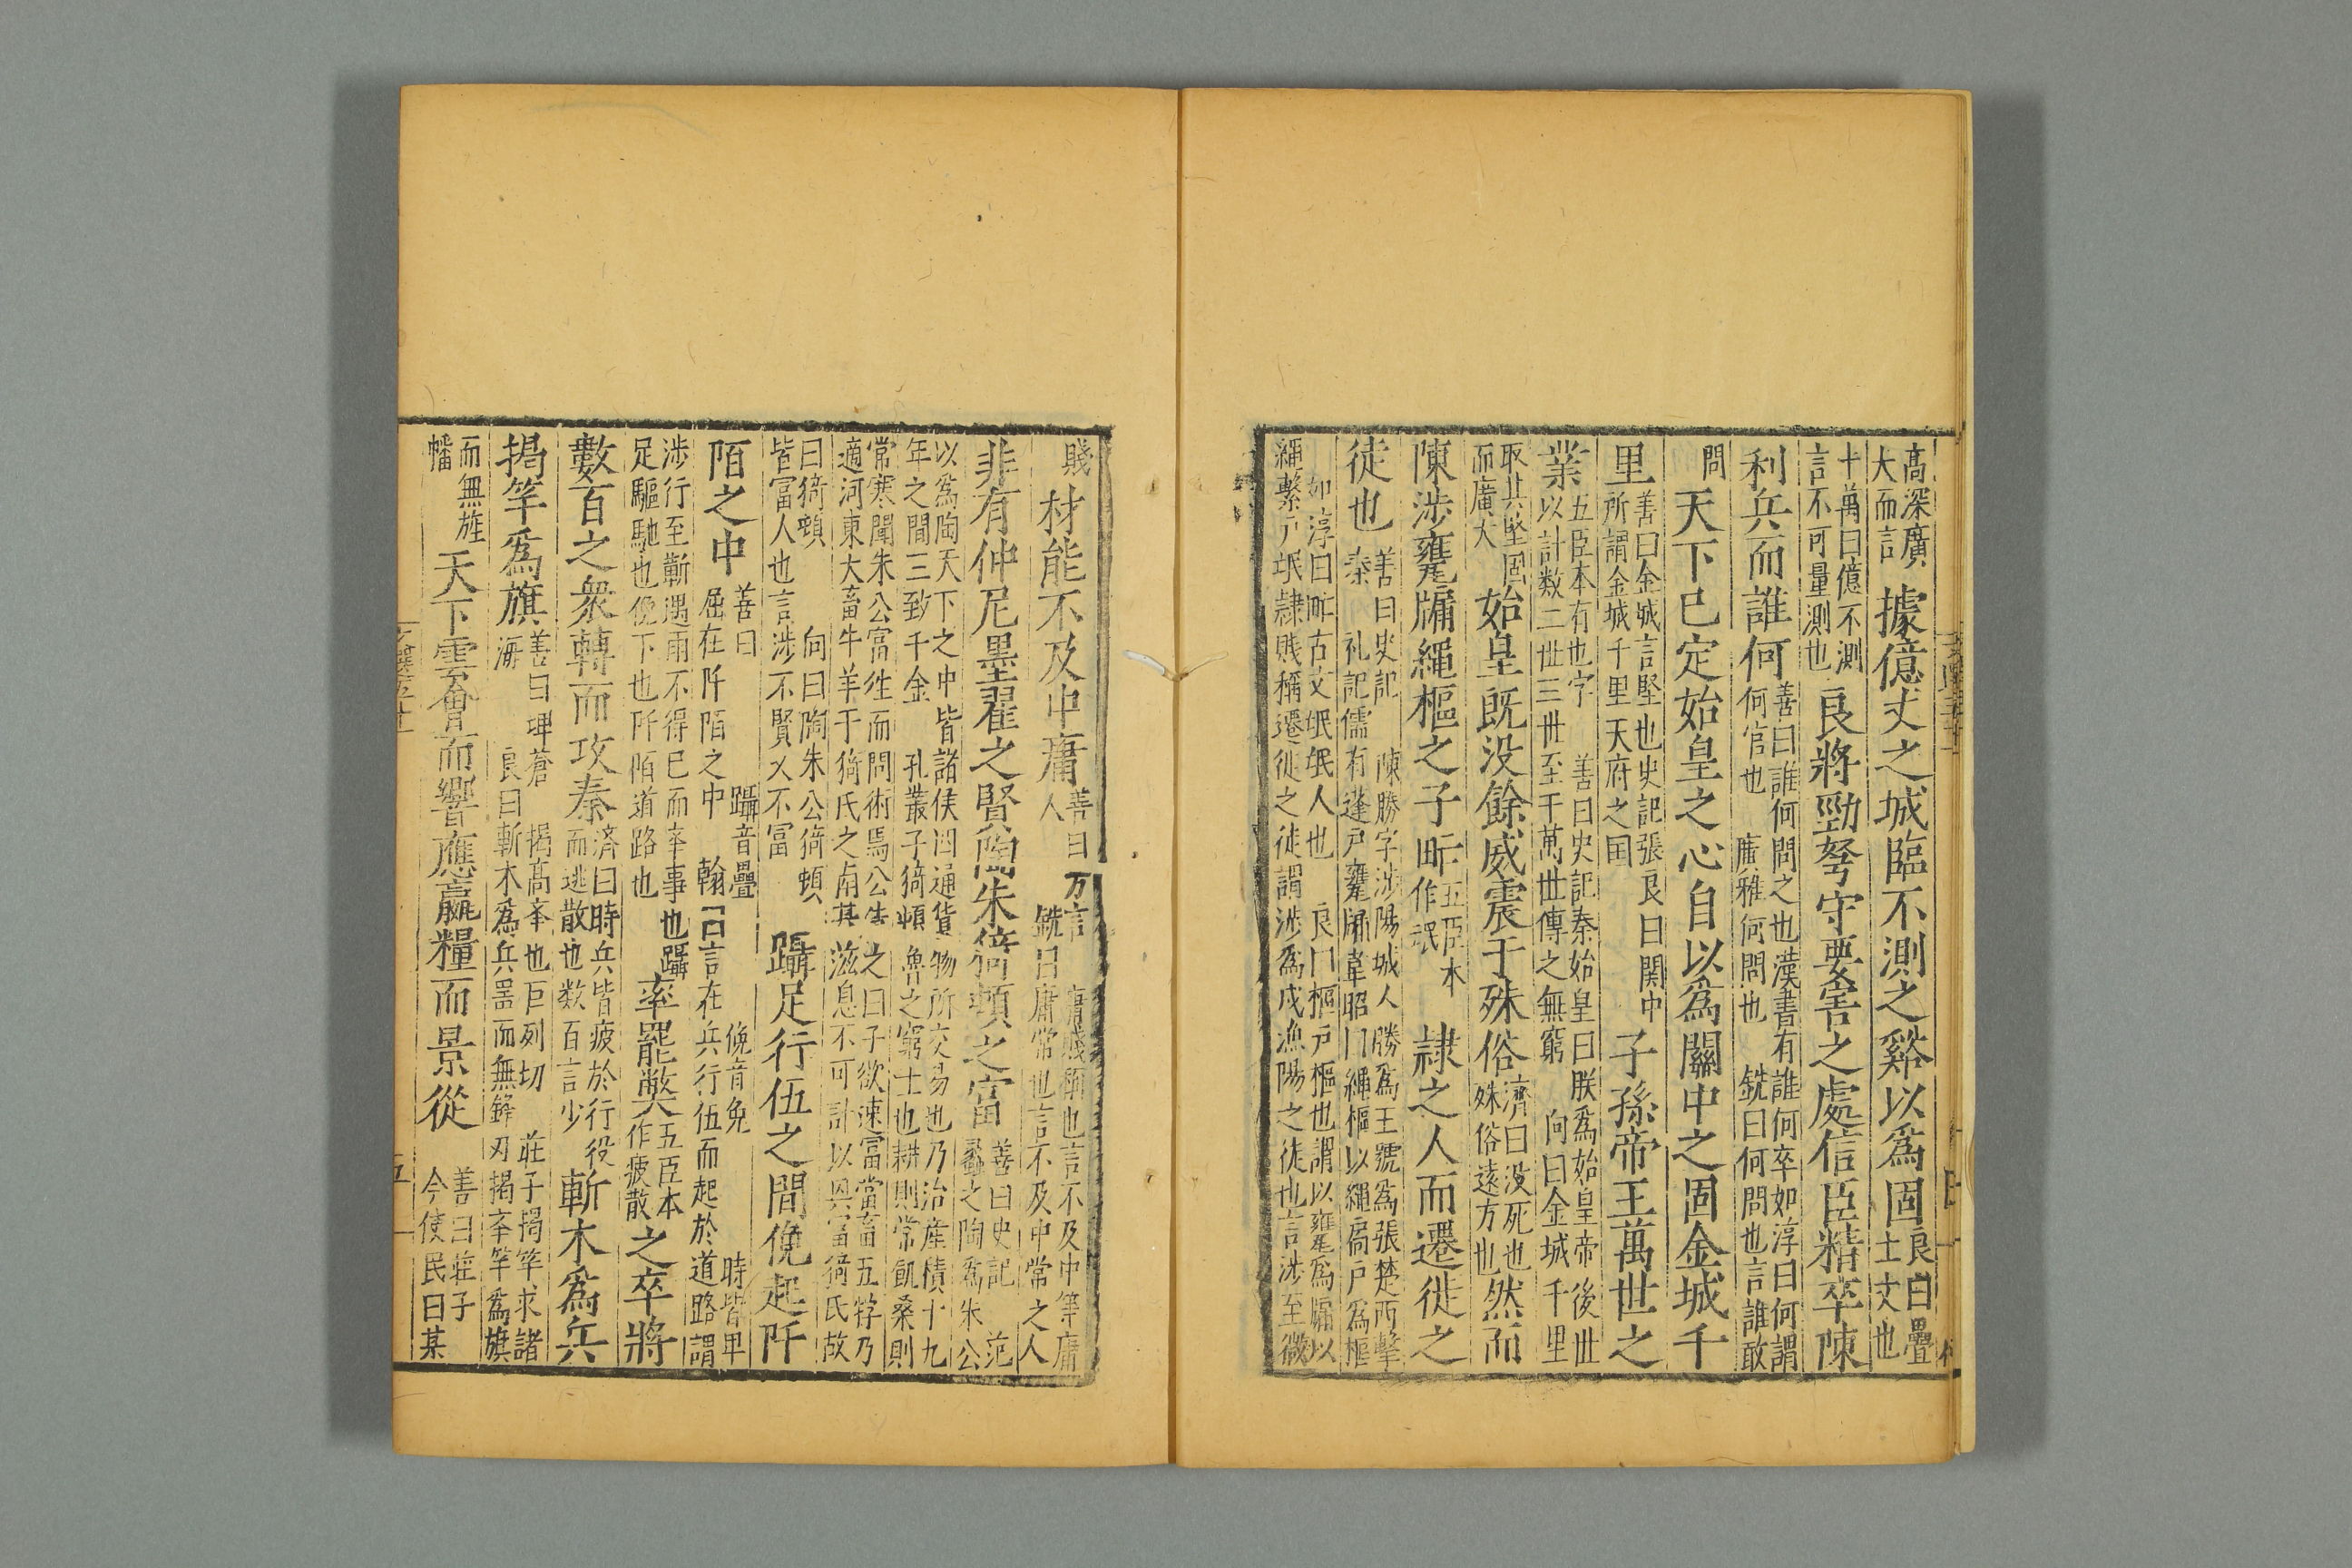 高深廣大而言 據億丈之城臨不測之谿以爲固 良曰疊士丈也
十萬曰億不測言不可量測也 良將勁弩守要害之處信臣精卒陳
利兵而誰何 善曰誰何問之也漢書有誰何卒如淳曰何謂何官也 廣雅何問也 銑曰何問也言誰敢
問 天下已定始皇之心自以爲關中之固金城千
里 善曰金城言堅也史記張良曰関中所謂金城千里天府之国 子孫帝王萬世之
業 五臣本有也字 善曰史記秦始皇曰朕爲始皇帝後世以計数二世三世至于萬世傳之無窮 向曰金城千里
取其堅固而廣大 始皇既没餘威震于殊俗 濟曰没死也殊俗遠方也 然而
陳涉甕牖繩樞之子甿 五臣本作氓 隷之人而遷徙之
徒也 善曰史記 陳勝字涉陽城人勝爲王號爲張楚西擊秦 礼記儒有蓬戸甕牖韋昭曰繩樞以繩扃戸爲樞
如淳曰甿古文氓氓人也 良曰樞戸樞也謂以甕爲牖以繩繫戸氓隷賎稱遷徙之徒謂涉爲戍漁陽之徒也言涉至微
賤 材能不及中庸 善曰 言人 銑曰庸常也言不及中常之人
非有仲尼墨翟之賢陶朱猗頓之富 善曰史記 范蠡之陶為朱公
以爲陶天下之中皆諸侯四通貨物所交易也乃治産積十九年之間三致千金 孔叢子猗頓魯之窮士也耕則常飢桑則
常寒聞朱公富徃而問術焉公告之曰子欲速富當畜五牸乃適河東大畜牛羊于猗氏之南其滋息不可計以興富猗氏故
曰猗頓 向曰陶朱公猗頓皆富人也言涉不賢又不富 躡足行伍之間俛起阡
陌之中 善曰 躡音疊 俛音免 時皆卑屈在阡陌之中 翰曰言在兵行伍而起於道路謂
涉行至蘄遇雨不得已而率事也躡足驅馳也俛下也阡陌道路也 率罷弊 五臣本作疲散 之卒將
數百之衆轉而攻秦 濟曰時兵皆疲於行役而逃散也数百言少 斬木爲兵
揭竿爲旗 善曰埤蒼 揭高舉也巨列切 莊子揭竿求諸海 良曰斬木爲兵噐而無鋒刃揭舉竿爲旗
而無旌幡 天下雲會而響應贏糧而景從 善曰莊子今使民曰某